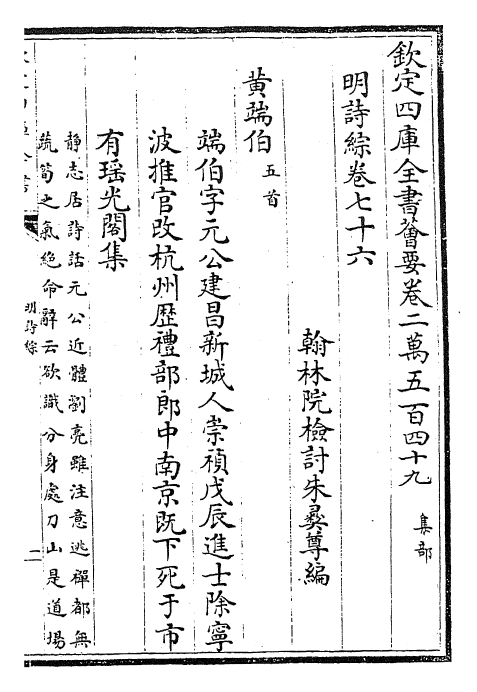 欽定四庫全書薈要卷二萬五百四十九 集部
明詩綜卷七十六
翰林院檢討朱彝尊編
黄端伯 五首
端伯字元公建昌新城人崇禎戊辰進士除寧
波推官改杭州歴禮部郎中南京既下死于市
有瑶光閣集
靜志居詩話元公近體劉亮雖注意逃禪都無
蔬筍之氣絶命辭云欲識分身處刀山是道場
明詩綜